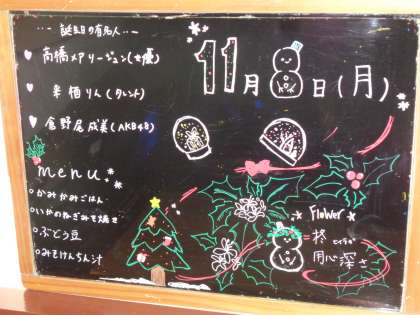 … 誕生日の有名人 …
♥ 高橋メアリージュン(女優)
♥ 来栖りん(タレント)
♥ 倉野尾成美(AKB48)
11月8日(月)
Menu
○かみかみごはん
○いかのねぎみそ焼き
○ぶどう豆
○みそけんちん汁
Flower
柊 ヒイラギ
用心深さ